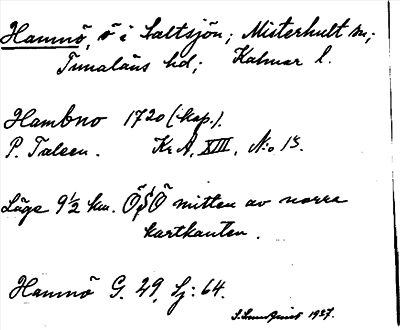 Hamnö, ö i Saltsjön; Misterhult sn;
Tunaläns hd; Kalmar l.
Hambno 1720 (kop.).
P. Talsen. Kr. A. XIII. No 13.
Läge 9½ km. ÖSÖ mitten av norra
kartkanten.
Hamnö G. 29, Sj: 64.
1927.